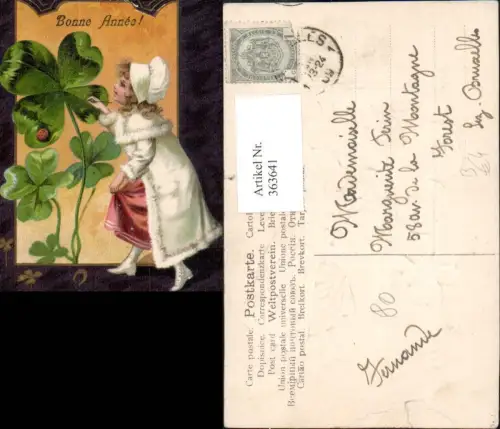 Bonne Année!
Artikel Nr.
363641
Mademoiselle
Marguerite
58 av. de la Montagne
Forest
Lez-Bruxelles
80
Fernande
Carte postale. Postkarte.
Dopisnice. Correspondenzkarte.
Post card Weltpostverein.
Union postale universelle Unione postale
Всемірный почтовый союзъ. Россія.
Cartão postal. Brefkort. Brevkort.